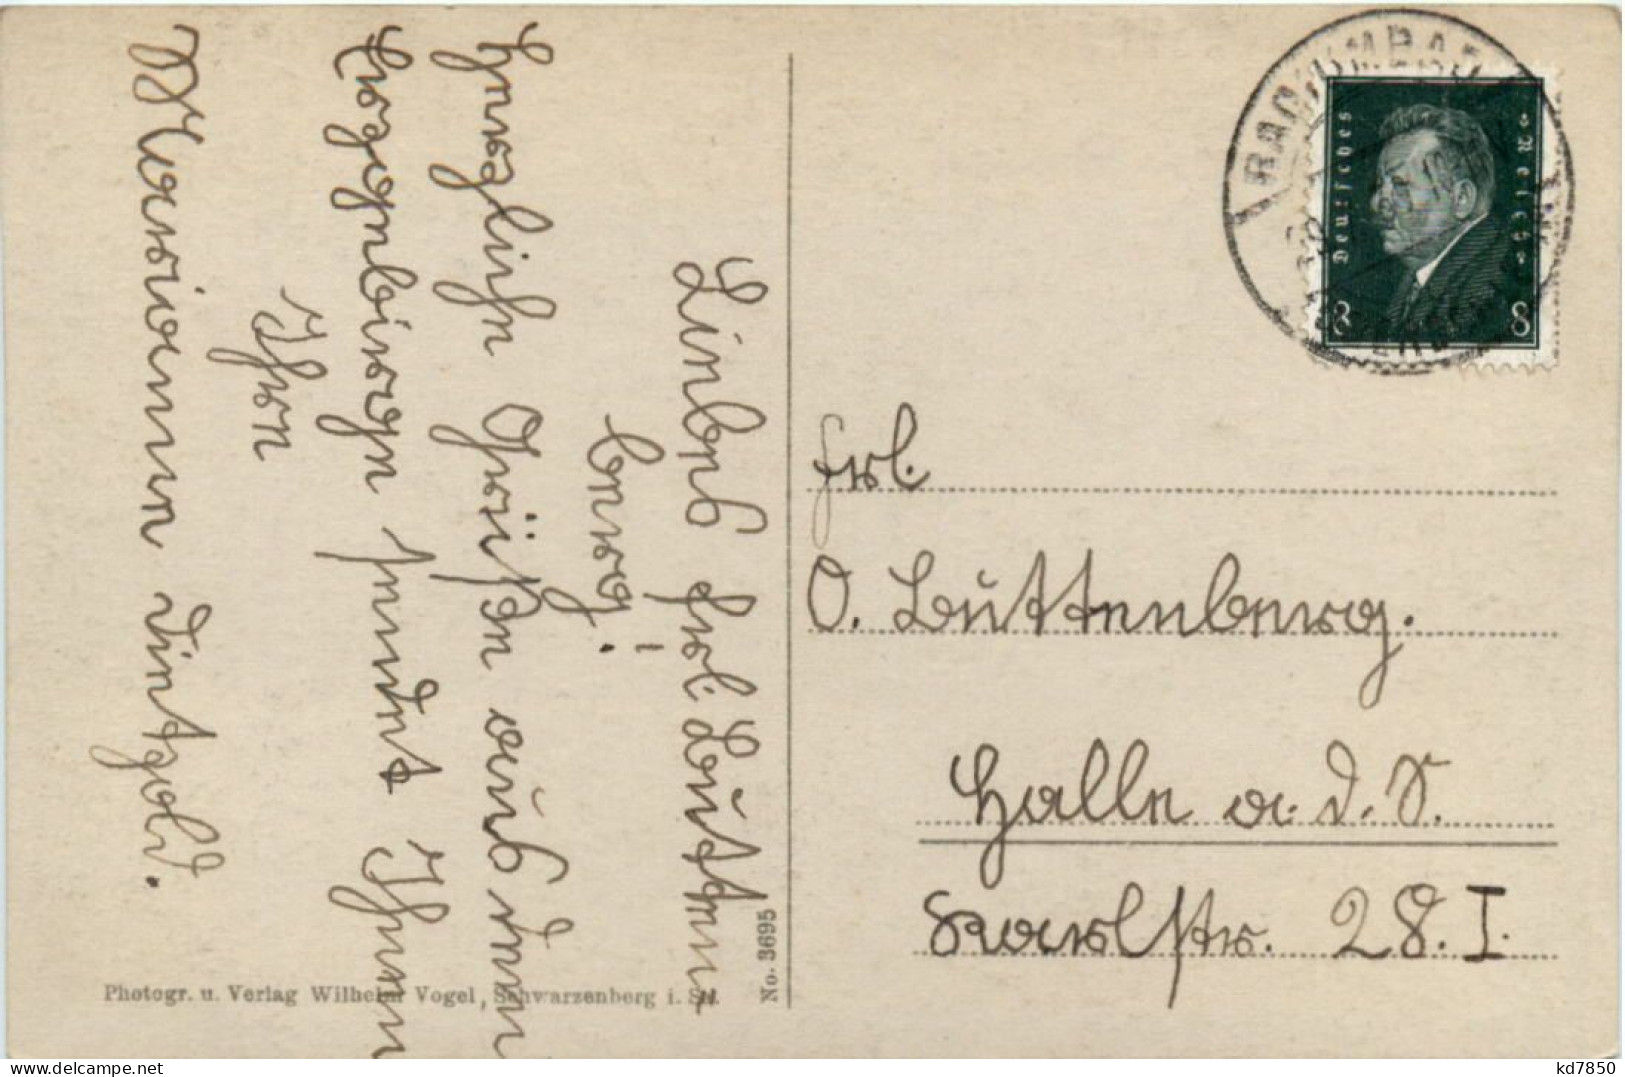 Liebes Frl. Butten-
berg!
Herzliche Grüße aus dem
Erzgebirge sendet Ihnen
Ihre
Marianne Dietzold.
Photogr. u. Verlag Wilhelm Vogel, Schwarzenberg i. Sa.
No. 3695
Deutsches Reich
8 8
Frl.
O. Buttenberg.
Halle a. d. S.
Karlstr. 28. I.
kd7850
www.delcampe.net